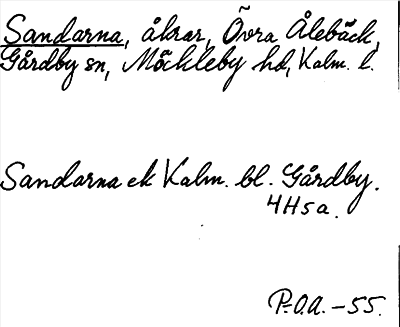 Sandarna, åkrar, Övra Ålebäck,
Gårdby sn, Möckleby hd, Kalm. l.
Sandarna ek Kalm. bl. Gårdby.
4H5a.
P.O.A. - 55.